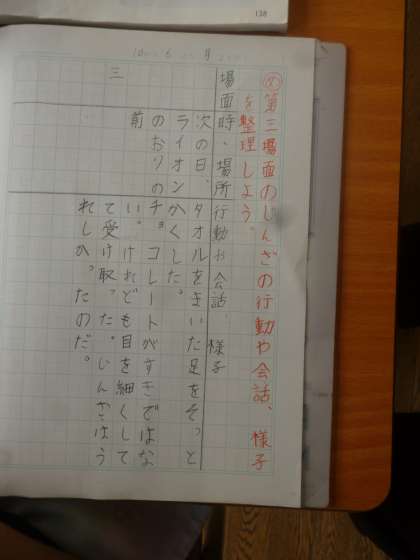 138
10 16 月
め 第三場面のじんざの行動や会話、様子
を整理しよう。
場面 時・場所 行動や会話、様子
三
次の日、
ライオン
のおりの
前
タオルをまいた足をそっと
かくした。
チョコレートがすきではな
い。けれども目を細くして
て受け取った。じんざはう
れしかったのだ。